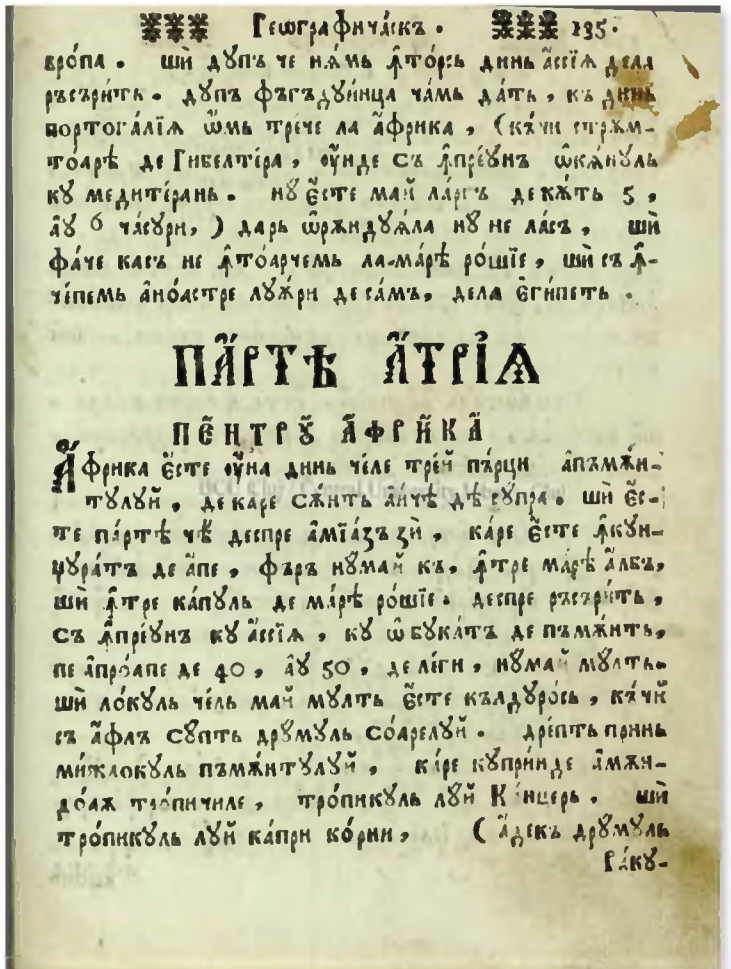 Геѡграфичѧскъ. 135.
врѡ́па. ши̇̀ дꙋпъ че нѧмь ꙟ҆то́рсь динь а҆́ссїѧ дела
ръсъри́ть. дꙋпъ фъгъдꙋи́нца ча́мь да́ть, къ динь
портога́лїѧ ѡ҆мь тре́че ла а҆́фрика, (къ́чи стрѫм-
то́арѣ де Гибелте́ра, ᲂу҆́нде съ ꙟ҆преꙋ́нъ ѡ҆кѧ́нꙋль
кꙋ медите́рань. нꙋ є҆́сте ма́й ла́ргъ де кѫ́ть 5,
а҆́ꙋ 6 ча́сꙋри,) да́рь ѡ҆рѫндꙋѧ́ла нꙋ не ла́съ, ши̇̀
фа́че ка съ не ꙟ҆то́арчемь ла ма́рѣ ро́шїе, ши̇̀ съ ꙟ҆-
че́пемь а҆ноа́стре лꙋкрꙋ́ри де са́мъ, дела є҆ги́петь.
ПА́РТѢ А҆́ТРІ́Ѧ
ПЕ́НТРꙊ А҆́ФРИ́КА
А҆́фрика є҆́сте ᲂу҆́на динь че́ле тре́й пъ́рци а҆пъмѫ́н-
тꙋлꙋ́й, де ка́ре сѫ́нть а҆и́чѣ дѣ сꙋ́пра. ши̇̀ є҆́с-
те па́ртѣ чѣ̀ деспре а҆мїа́зъ зи̇̀, ка́ре є҆́сте ꙟ҆кꙋн-
џꙋра́тъ де а҆́пе, фъ́ръ нꙋма́й къ, ꙟ҆́тре ма́рѣ а҆́лбъ,
ши̇̀ ꙟ҆́тре ка́пꙋль де ма́рѣ ро́шїе. деспре ръсъри́ть,
съ ꙟ҆преꙋ́нъ кꙋ а҆́ссїѧ, кꙋ ѡ҆ бꙋка́тъ де пъмѫ́нть,
пе а҆проа́пе де 40, а҆́ꙋ 50, де ле́ги, нꙋма́й мꙋлть.
ши̇̀ ло́кꙋль че́ль ма́й мꙋлть є҆́сте кълдꙋро́сь, къ́чй
съ а҆́флъ сꙋпть дрꙋ́мꙋль со́арелꙋй. дре́пть принь
ми́жлокꙋль пъмѫ́нтꙋлꙋй, ка́ре кꙋпри́нде а҆мѫ́н-
до́аѫ тро́пичиле, тро́пикꙋль лꙋ́й Ка́нцерь. ши̇̀
тро́пикꙋль лꙋ́й ка́при ко́рни, (а҆́декъ дрꙋ́мꙋль
Ра́кꙋ-